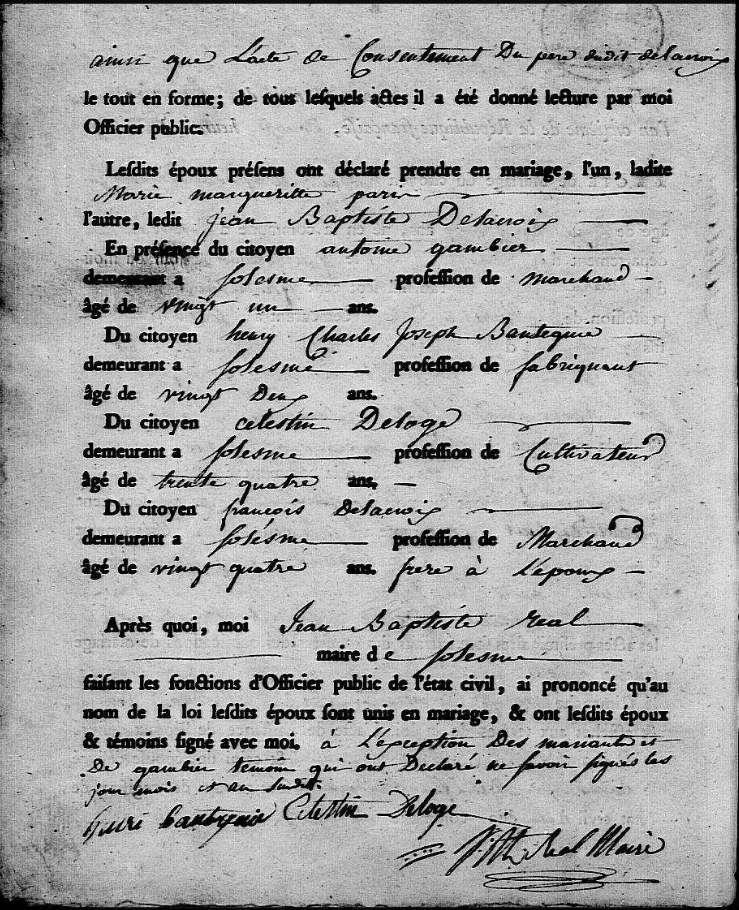 ainsi que L'acte de Consentement Du pere dudit delacroix
le tout en forme; de tous leſquels actes il a été donné lecture par moi
Officier public.
Leſdits époux préſens ont déclaré prendre en mariage, l'un, ladite
Marie margueritte paris
l'autre, ledit jean Baptiste Delacroix
En préſence du citoyen antoine gambier
demeurant a ſolesme profeſſion de marchand
âgé de vingt un ans.
Du citoyen henry Charles Joseph Bantegnie
demeurant a ſolesme profeſſion de fabriquant
âgé de vingt Deux ans.
Du citoyen celestin Deloge
demeurant a ſolesme profeſſion de Cultivateur
âgé de trente quatre ans,
Du citoyen francois Delacroix
demeurant a ſolesme profeſſion de Marchand
âgé de vingt quatre ans. frere à L'epoux
Après quoi, moi Jean Baptiste real
maire de ſolesme
faiſant les fonctions d'Officier public de l'état civil, ai prononcé qu'au
nom de la loi leſdits époux ſont unis en mariage, & ont leſdits époux
& témoins ſigné avec moi. à L'exception Des mariants et
De gambier temoin qui ont Declaré ne ſavoir ſigner les
jour mois et an ſusdit.
Celestin Deloge
Real Maire